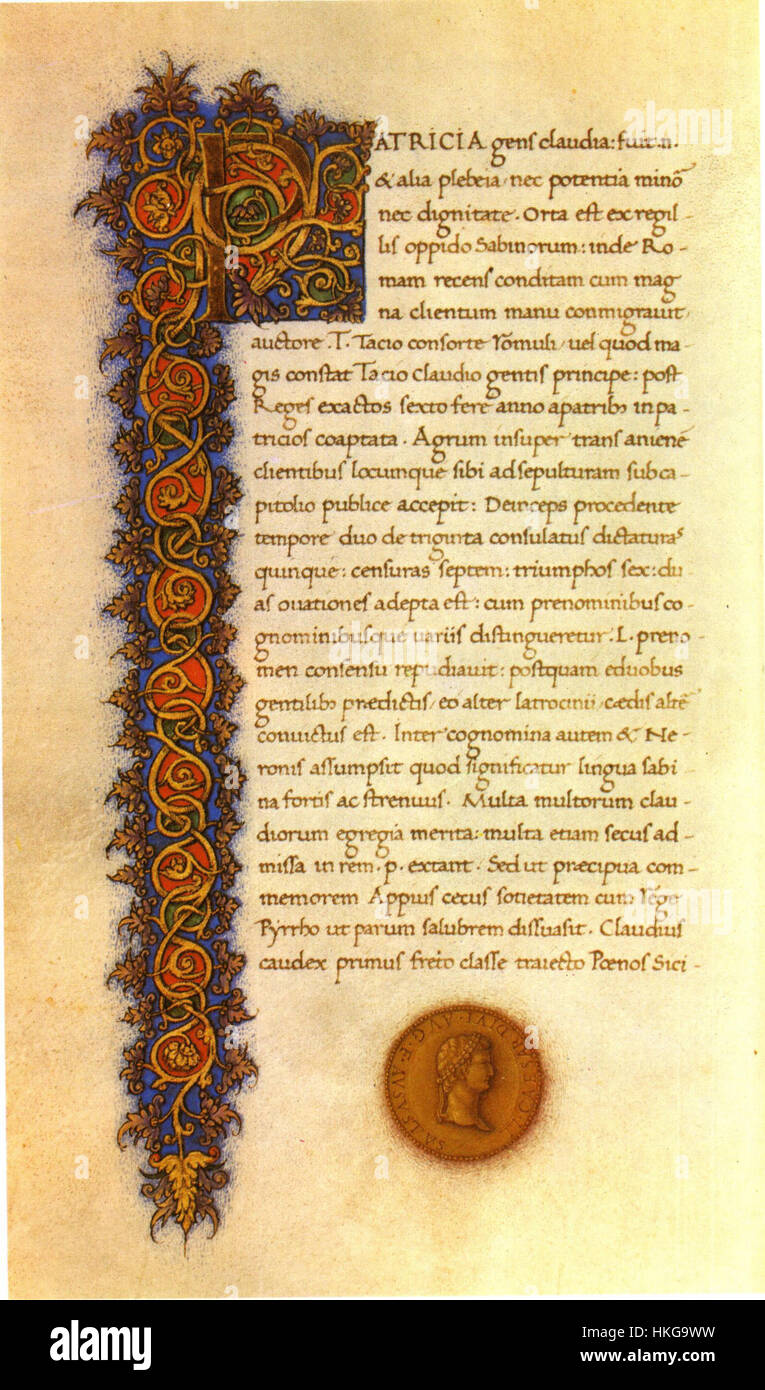 PATRICIA gens claudia: fuit .n.
& alia plebeia / nec potentia minō
nec dignitate. Orta est ex regil-
lis oppido Sabinorum: inde Ro-
mam recens conditam cum mag
na clientum manu conmigrauit /
auctore .T. Tacio consorte romuli / uel quod ma-
gis constat Tacio Claudio gentis principe: post
Reges exactos sexto fere anno apatrib; inpa-
tricios coaptata. Agrum insuper trans anienē
clientibus locumque sibi ad sepulturam sub ca-
pitolio publice accepit: Deinceps procedente
tempore duo de triginta consulatus dictaturas
quinque: censuras septem: triumphos sex: du-
as ouationes adepta est: cum prenominibus co-
gnominibusque uariis distingueretur. L. preno-
men consensu repudiauit: postquam eduobus
gentilib; prædictis / eo alter latrocinii / cædis altē
conuictus est. Inter cognomina autem & Ne-
ronis assumpsit quod significatur lingua sabi
na fortis ac strenuus. Multa multorum clau-
diorum egregia merita: multa etiam secus ad-
missa in rem .p. extant. Sed ut præcipua com-
memorem Appius cecus societatem cum rege
Pyrrho ut parum salubrem dissuasit. Claudius
caudex primus freto classe traiecto Pœnos Sici-
TI CAESAR DIVI AVG F AVGVST
alamy
Image ID: HKG9WW
www.alamy.com